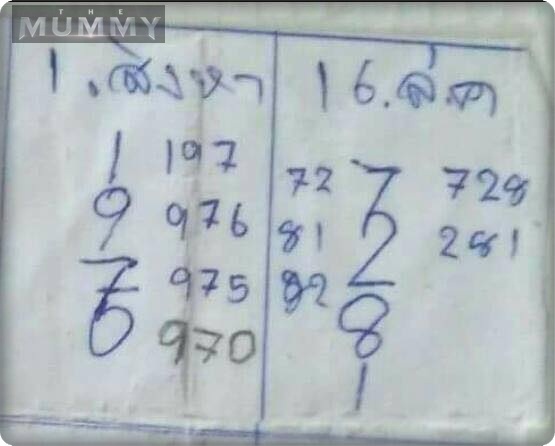 THE
MUMMY
1.สิงหา
1 197
9 976
7 975
6 970
16.ส.ค
72 7 728
81 2 281
82 8
1